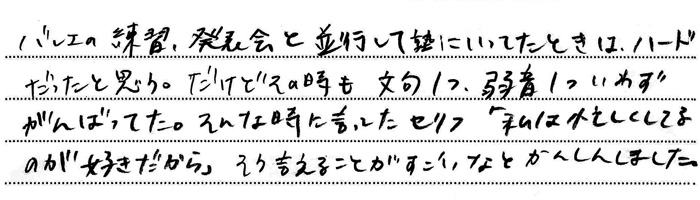 バレエの練習、発表会と並行して塾にいってたときは、ハード
だったと思う。だけどその時も文句1つ、弱音1ついわず
がんばってた。そんな時に言ったセリフ「私は忙しくしてる
のが好きだから」そう言えることがすごいなとかんしんしました。